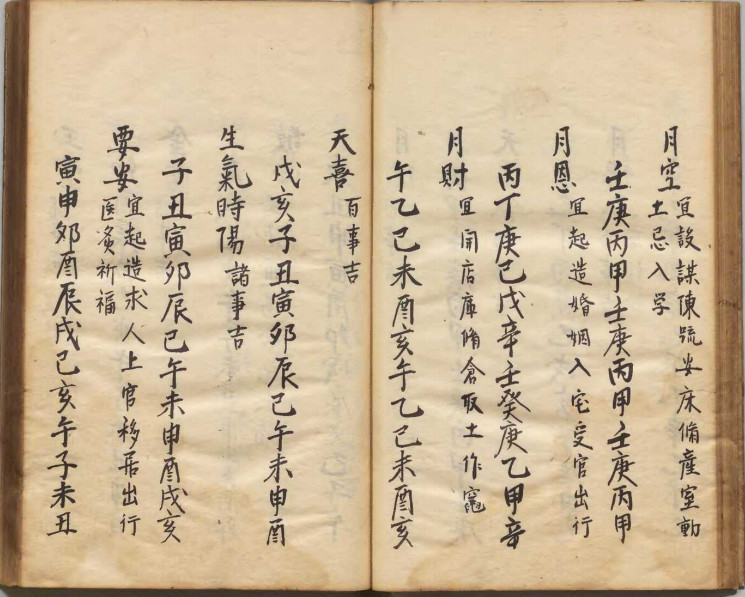 月空 宜設謀陳疏安床脩産室動
土忌入学
壬庚丙甲壬庚丙甲壬庚丙甲
月恩 宜起造婚姻入宅受官出行
丙丁庚己戊辛壬癸庚乙甲辛
月財 宜開店庫脩倉取土作竈
午乙巳未酉亥午乙巳未酉亥
天喜 百事吉
戌亥子丑寅卯辰巳午未申酉
生氣時陽 諸事吉
子丑寅卯辰巳午未申酉戌亥
要安 宜起造求人上官移居出行
医灸祈福
寅申卯酉辰戌巳亥午子未丑